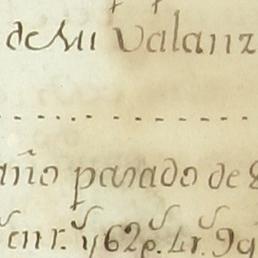 de su Valanz
año pasado de 8
en r. y 62 p. 4 r. 9 q